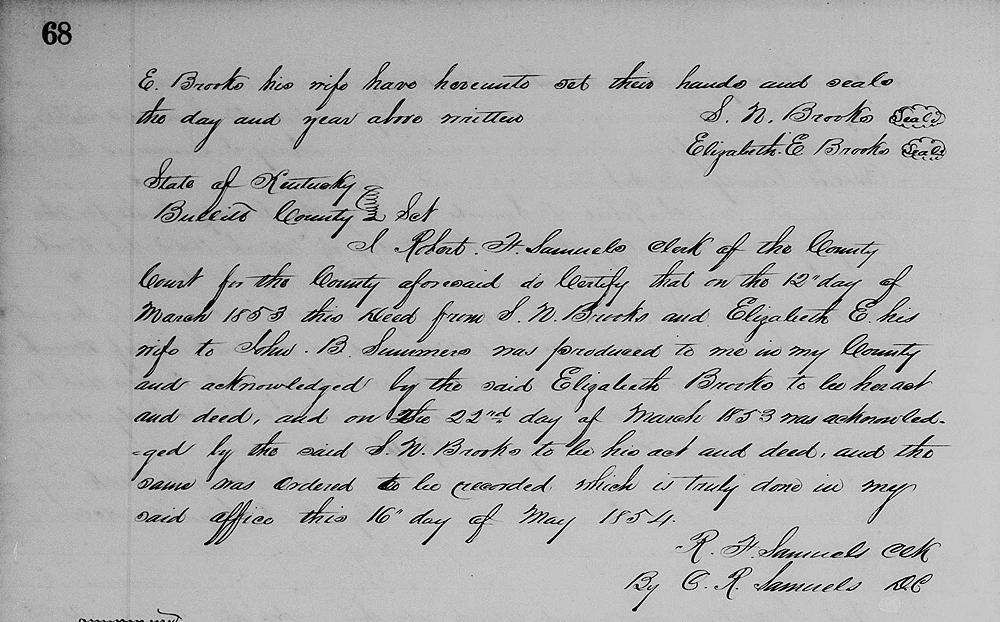 68
E. Brooks his wife have hereunto set their hands and seals
the day and year above written S. N. Brooks Seal
Elizabeth. E Brooks Seal
State of Kentucky
Bullitt County Sct
I Robert. F. Samuels Clerk of the County
Court for the County aforesaid do Certify that on the 12" day of
March 1853 this Deed from S. N. Brooks and Elizabeth E. his
wife to John. B. Summers was produced to me in my County
and acknowledged by the said Elizabeth Brooks to be her act
and deed, and on the 22nd day of March 1853 was acknowled-
-ged by the said S. N. Brooks to be his act and deed, and the
same was ordered to be recorded which is truly done in my
said office this 16" day of May 1854.
R. F. Samuels Clk
By C. R. Samuels DC